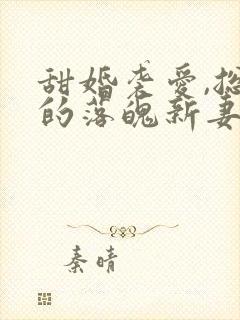 甜婚袭爱,总
的落魄新妻
秦晴